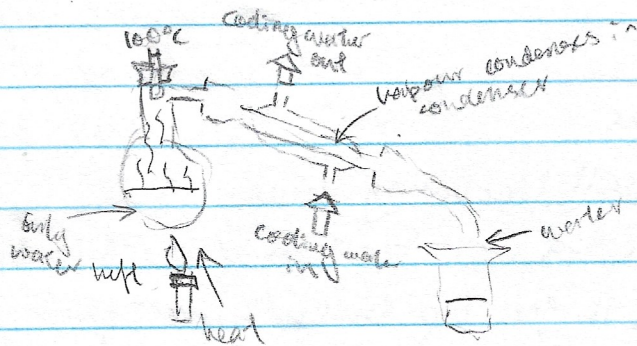 100°C
Cooling water
out
vapour condenses in
condenser
only
water left
heat
cooling water
in
water